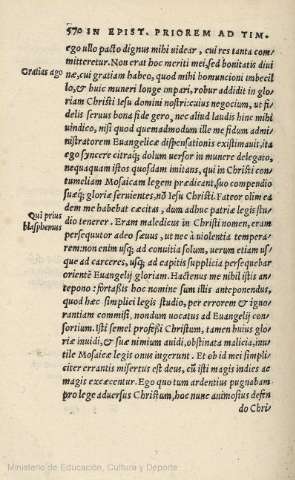 570 IN EPIST. PRIOREM AD TIM.
ego ullo pacto dignus mihi videar, cui res tanta com-
mitteretur. Non erat hoc meriti mei, sed bonitatis divi
Gratias ago
næ, cui gratiam habeo, quod mihi homuncioni imbecil
lo, & huic muneri longe impari, robur addidit in glo
riam Christi Iesu domini nostri: cuius negocium, ut fi
delis seruus bona fide gero, nec aliud laudis hinc mihi
uindico, nisi quod quemadmodum ille me fidum admi
nistratorem Euangelicæ dispensationis existimauit, ita
ego syncere citraq; dolum uersor in munere delegato,
nequaquam istos quosdam imitans, qui in Christi con
tumeliam Mosaicam legem prædicant, suo compendio
suæq; gloriæ seruientes, nō Iesu Christi. Fateor olim ea
dem me habebat cæcitas, dum adhuc patriæ legis stu
Qui prius
blasphemus
dio tenerer. Eram maledicus in Christi nomen, eram
persequutor adeo sæuus, ut nec à uiolentia tempera-
rem: non enim usq; ad conuitia solum, uerum etiam us-
que ad carceres, usq; ad capitis supplicia persequebar
orientē Euangelij gloriam. Hactenus me nihil istis an-
tepono: fortassis hoc nomine sum illis anteponendus,
quod hæc simplici legis studio, per errorem & igno-
rantiam commisi, nondum uocatus ad Euangelij con-
sortium. Isti semel professi Christum, tamen huius glo
riæ inuidi, & suæ nimium auidi, obstinata malicia, inu-
tile Mosaicæ legis onus ingerunt. Et ob id mei simpli
citer errantis misertus est deus, cū isti magis indies ac
magis excæcentur. Ego quo tum ardentius pugnabam
pro lege aduersus Christum, hoc nunc animosius defen
do Chri-
Ministerio de Educación, Cultura y Deporte